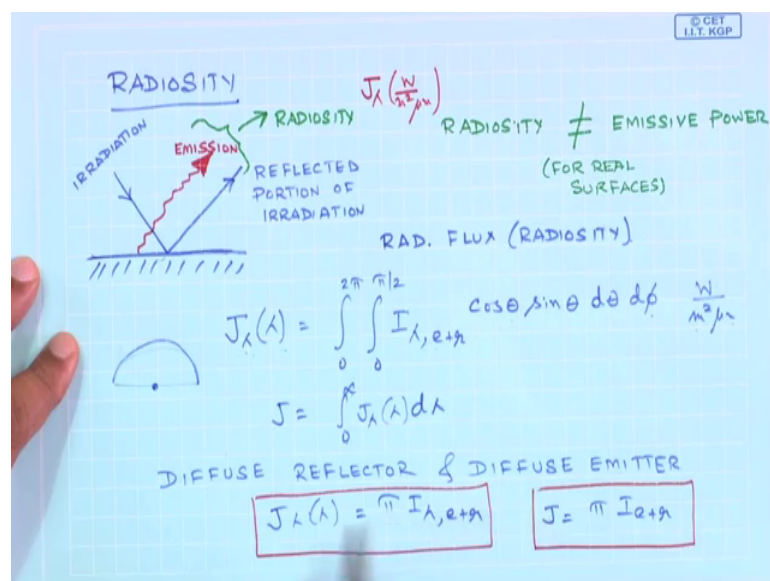 © CET
I.I.T. KGP
RADIOSITY
J_λ (W/m² μm)
IRRADIATION
EMISSION
→ RADIOSITY
REFLECTED
PORTION OF
IRRADIATION
RADIOSITY ≠ EMISSIVE POWER
(FOR REAL
SURFACES)
RAD. FLUX (RADIOSITY)
J_λ(λ) = ∫_0^{2π} ∫_0^{π/2} I_{λ,e+r} cosθ sinθ dθ dϕ W/m² μm
J = ∫_0^∝ J_λ(λ)dλ
DIFFUSE REFLECTOR & DIFFUSE EMITTER
J_λ(λ) = π I_{λ,e+r}
J = π I_{e+r}